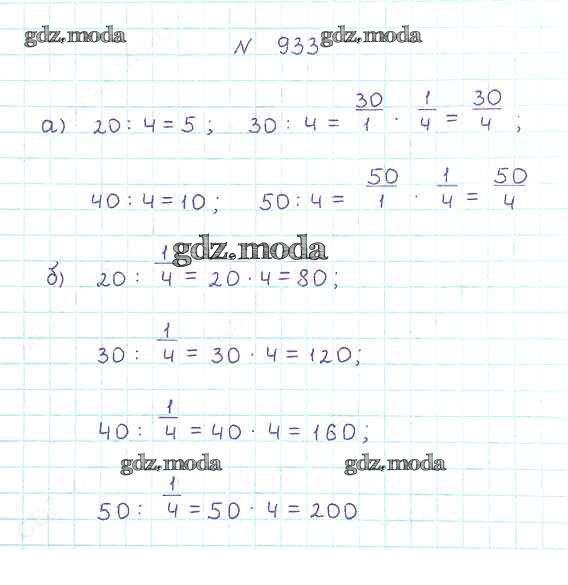 gdz.moda № 933 gdz.moda
а) 20 : 4 = 5 ; 30 : 4 = 30/1 · 1/4 = 30/4 ;
40 : 4 = 10 ; 50 : 4 = 50/1 · 1/4 = 50/4
gdz.moda
б) 20 : 1/4 = 20 · 4 = 80 ;
30 : 1/4 = 30 · 4 = 120 ;
40 : 1/4 = 40 · 4 = 160 ;
gdz.moda gdz.moda
50 : 1/4 = 50 · 4 = 200